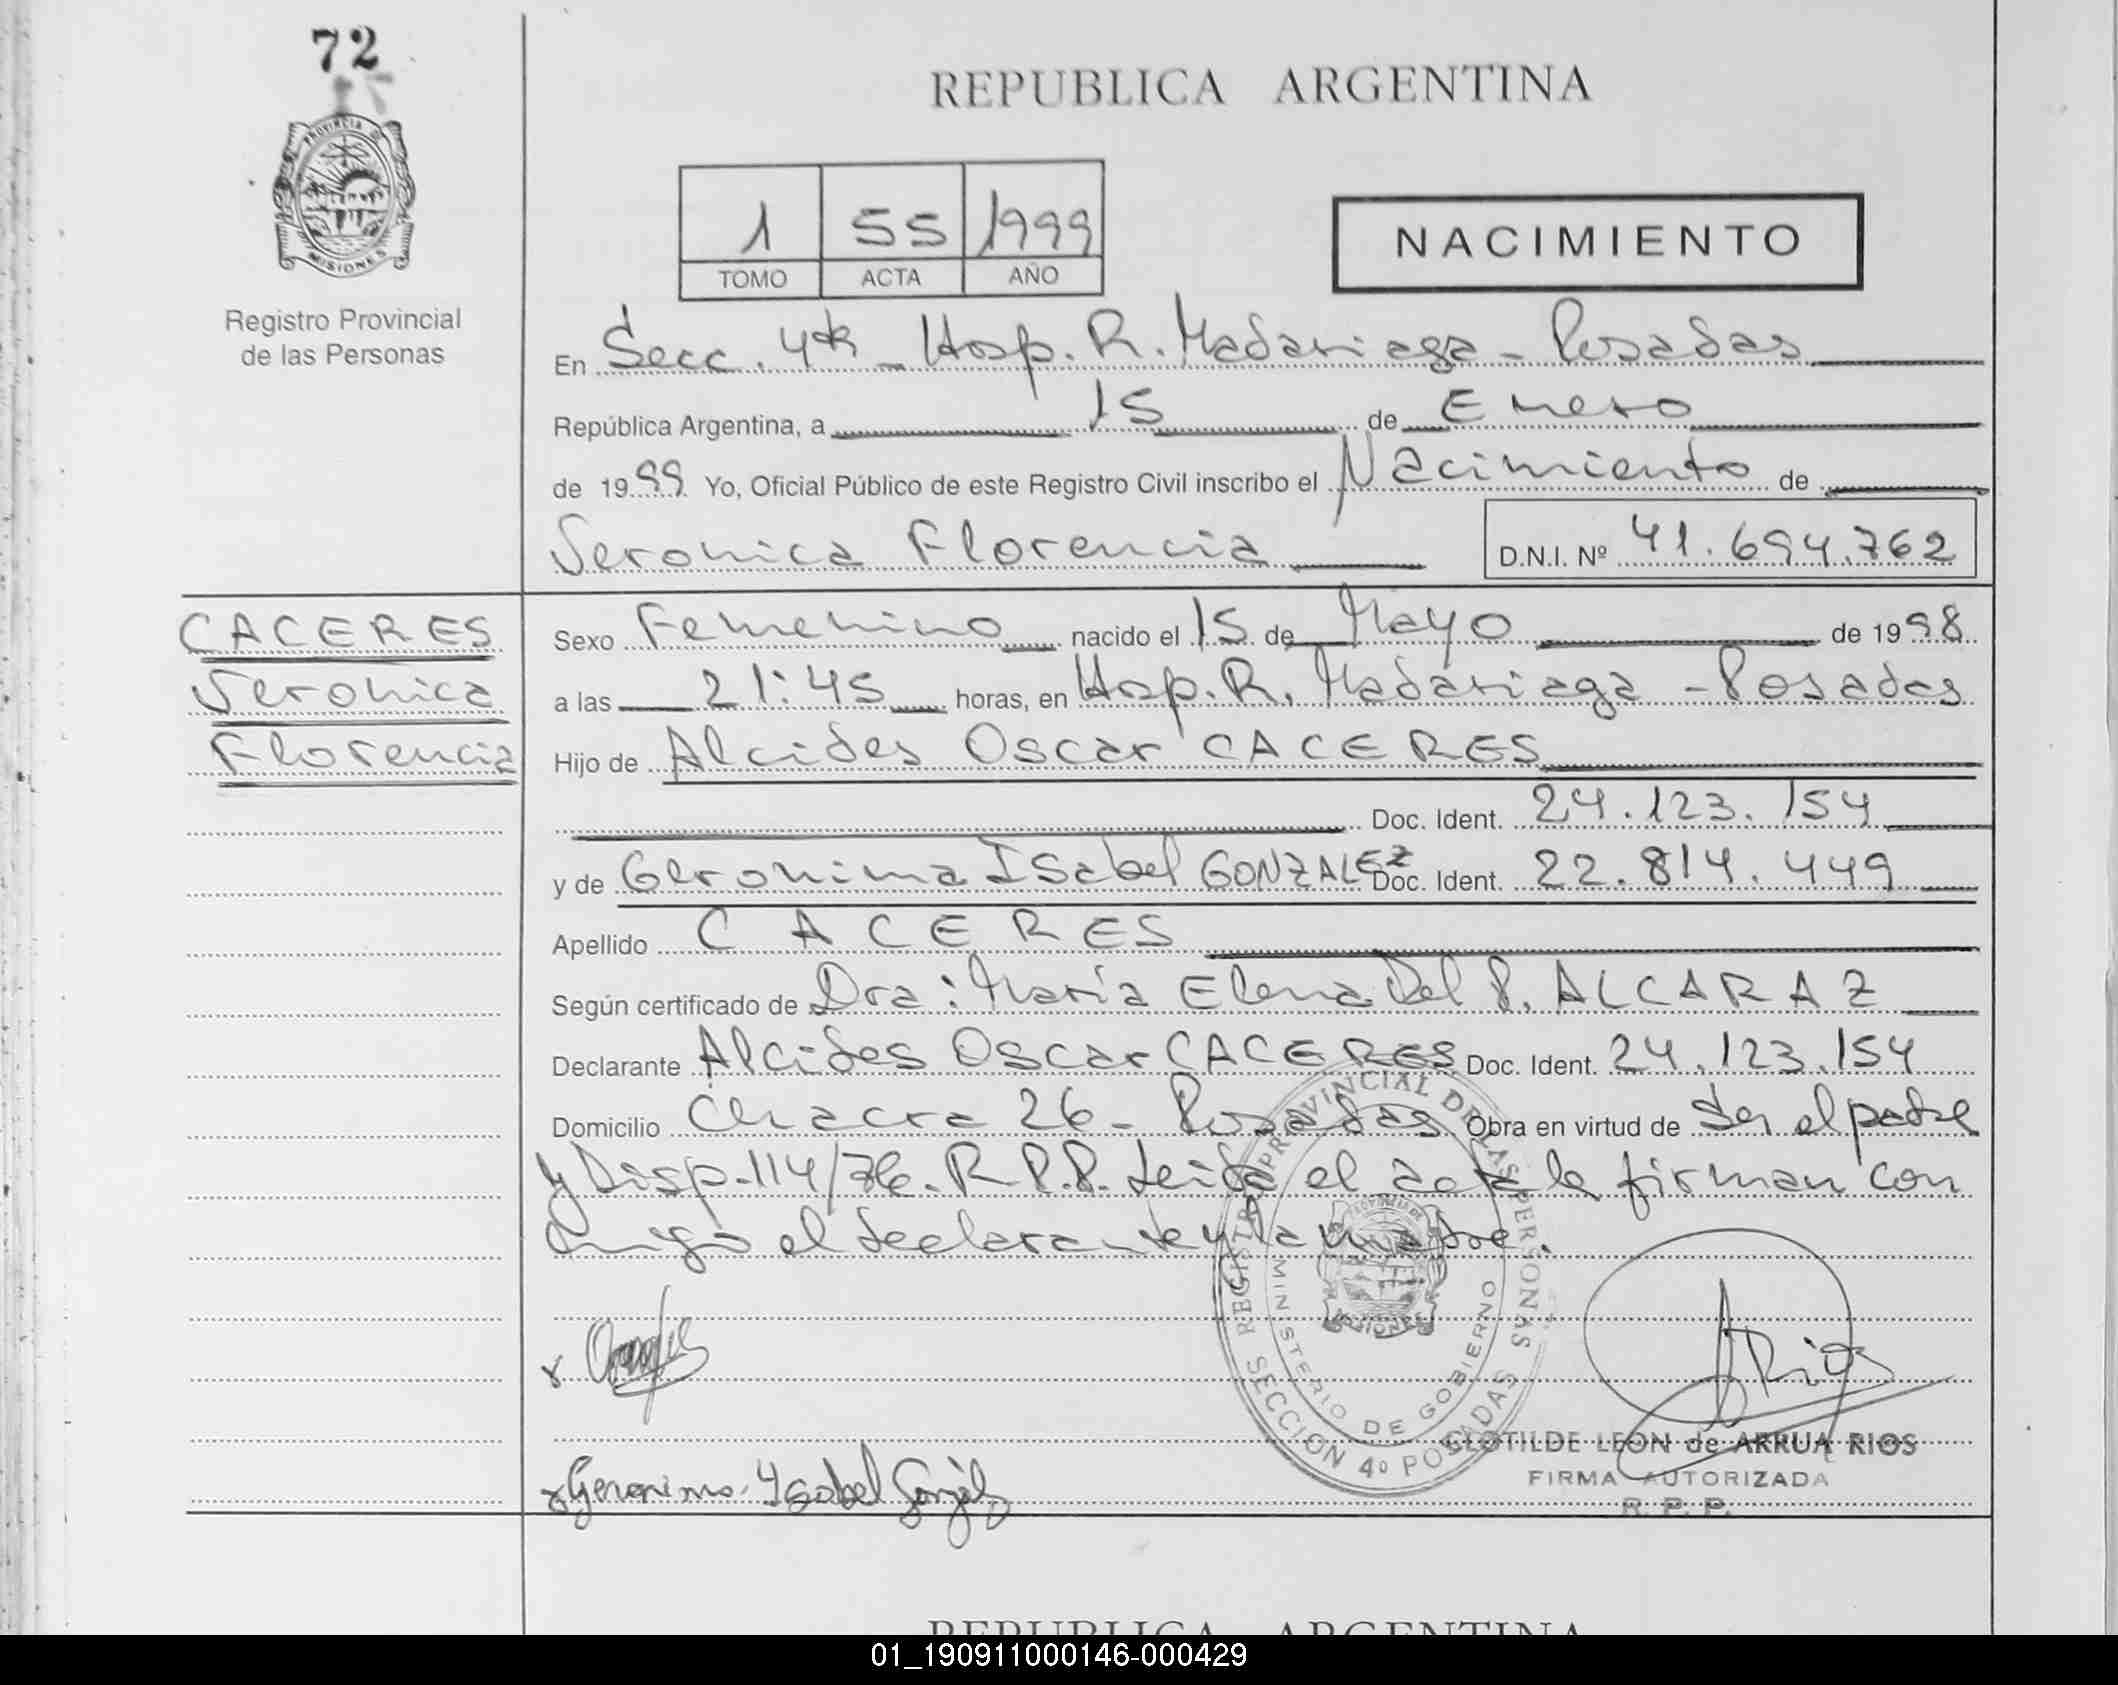 72
REPUBLICA ARGENTINA
PROVINCIA DE
MISIONES
Registro Provincial
de las Personas
1 55 1999
TOMO ACTA AÑO
NACIMIENTO
En Secc. 4ta - Hosp. R. Madariaga - Posadas
República Argentina, a 15 de Enero
de 1999 Yo, Oficial Público de este Registro Civil inscribo el Nacimiento de
Veronica Florencia D.N.I. Nº 41.694.762
CACERES
Veronica
Florencia
Sexo Femenino nacido el 15 de Mayo de 1998
a las 21:45 horas, en Hosp. R. Madariaga - Posadas
Hijo de Alcides Oscar CACERES
Doc. Ident. 24.123.154
y de Geronima Isabel GONZALEZ Doc. Ident. 22.814.449
Apellido CACERES
Según certificado de Dra: María Elena Del P. ALCARAZ
Declarante Alcides Oscar CACERES Doc. Ident. 24.123.154
Domicilio Chacra 26 - Posadas Obra en virtud de ser el padre
y Disp. 114/76. R.P.P. Leida el acta la firman con
migo el declarante y la madre.
REGISTRO PROVINCIAL DE LAS PERSONAS
MINISTERIO DE GOBIERNO
SECCION 4º POSADAS
MISIONES
x
A Rios
CLOTILDE LEON de ARRUA RIOS
FIRMA AUTORIZADA
R. P. P.
x Geronima Ysabel Gonzalez
REPUBLICA ARGENTINA
01_190911000146-000429